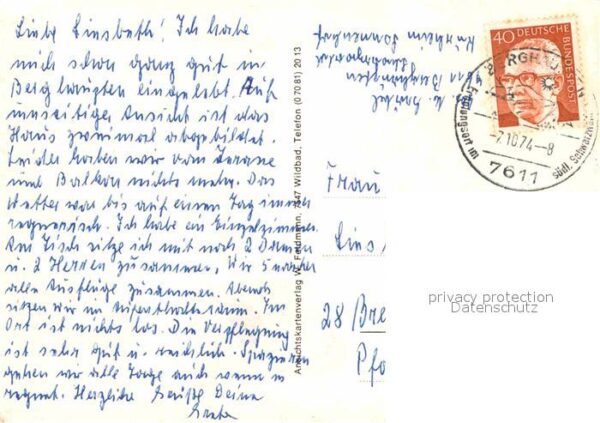 Liebe Linsbeth! Ich habe
mich schon ganz gut in
Berghaupten eingelebt. Auf
umseitiger Ansicht ist das
Haus zweimal abgebildet.
Leider haben wir vom Terasse
und Balkon nichts mehr. Das
Wetter war bis auf einen Tag immer
regnerisch. Ich habe ein Einzelzimmer.
Am Tisch sitze ich mit noch 2 Damen
u. 2 Herren zusammen, Wir 5 machen
alle Ausflüge zusammen. Abends
sitzen wir im Aufenthaltsraum. Im
Ort ist nichts los. Die Verpflegung
ist sehr gut u. reichlich. Spazieren
gehen wir alle Tage auch wenn es
regnet. Herzliche Grüße Deine
Greta
Ansichtskartenverlag W. Feldmann, 7547 Wildbad, Telefon (0 70 81) 20 13
Berghaupten
Kurheim Sonnenhof
40 DEUTSCHE BUNDESPOST
BERGHAUPTEN
-7.10.74-8
7611
Frau
28 Bre
privacy protection
Datenschutz